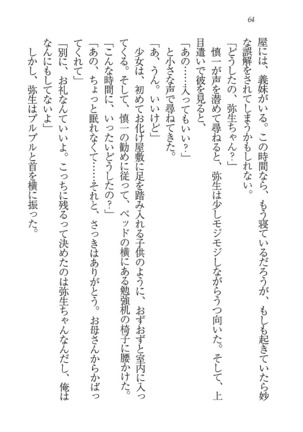 64
屋には、義妹がいる。この時間なら、もう寝ているだろうが、もしも起きていたら妙
な誤解をされてしまうかもしれない。
「どうしたの、弥生ちゃん？」
慎一が声を潜めて尋ねると、弥生は少しモジモジしながらうつ向いた。そして、上
目遣いで彼を見ると、
「あの……入ってもいい？」
と小さな声で尋ねてきた。
「あ、うん。いいけど」
少女は、初めてお化け屋敷に足を踏み入れる子供のように、おずおずと室内に入っ
てくる。そして、慎一の勧めに従って、ベッドの横にある勉強机の椅子に腰かけた。
「こんな時間に、いったいどうしたの？」
「あの、ちょっと眠れなくて……それと、さっきはありがとう。お母さんからかばっ
てくれて」
「別に、お礼なんていいよ。こっちに残るって決めたのは弥生ちゃんなんだし、俺は
なんにもしてないよ」
しかし、弥生はブルブルと首を横に振った。